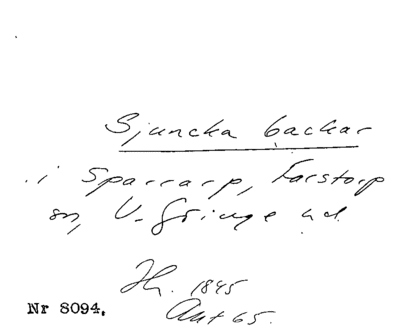 Sjuncka backar
i Sparrarp, Farstorp
sn, V. Göinge hd.
Hh. 1845
Akt 65.
Nr 8094.